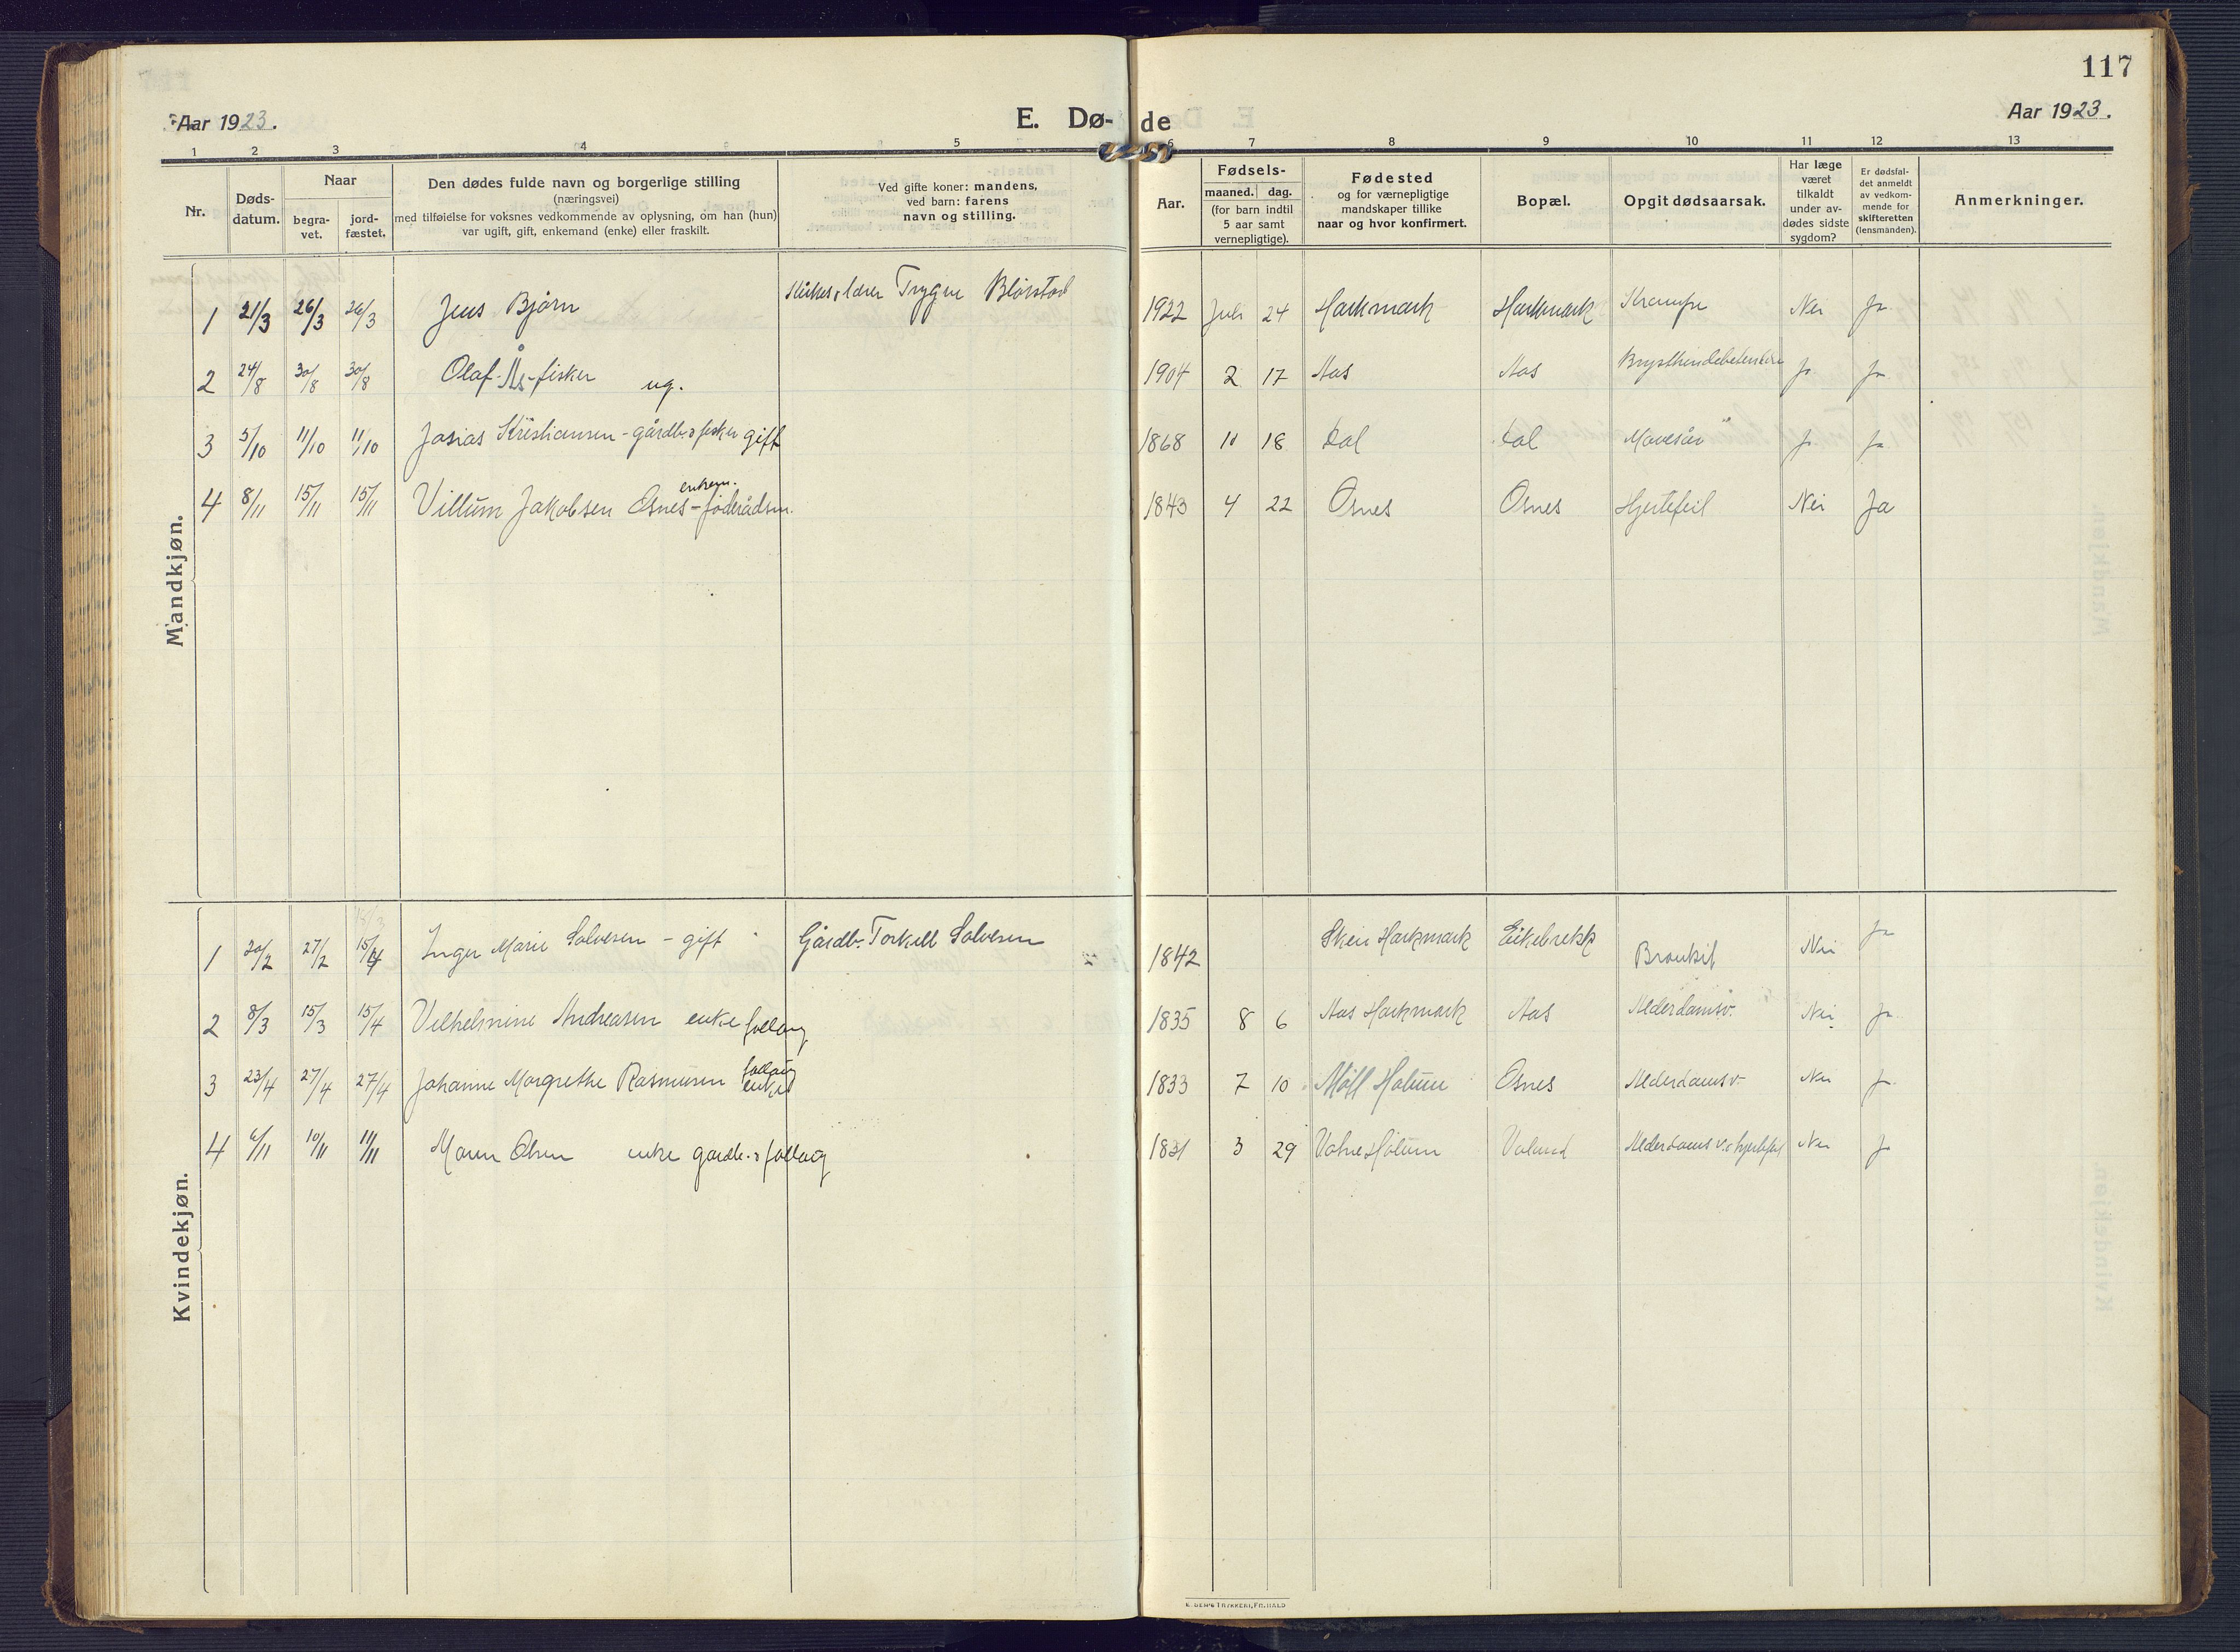 117
Aar 1923.
E. Dø- de
Aar 1923.
1 2 3 4 5 6 7 8 9 10 11 12 13
Nr.
Døds-
datum.
Naar
begra-
vet.
jord-
fæstet.
Den dødes fulde navn og borgerlige stilling
(næringsvei)
med tilføielse for voksnes vedkommende av oplysning, om han (hun)
var ugift, gift, enkemand (enke) eller fraskilt.
Ved gifte koner: mandens,
ved barn: farens
navn og stilling.
Aar.
Fødsels-
maaned. dag.
(for barn indtil
5 aar samt
vernepligtige).
Fødested
og for værnepligtige
mandskaper tillike
naar og hvor konfirmert.
Bopæl.
Opgit dødsaarsak.
Har læge
været
tilkaldt
under av-
dødes sidste
sygdom?
Er dødsfal-
det anmeldt
av vedkom-
mende for
skifteretten
(lensmanden).
Anmerkninger.
Mandkjøn.
1 21/3 26/3 26/3 Jens Bjørn Trygve 1922 Juli 24 Harkmark Harkmark Krampe Nei Ja
2 24/8 30/8 30/8 Olaf Ås - fisker ug. 1904 2 17 Aas Aas Ja Ja
3 5/10 11/10 11/10 Josias Kristiansen - gårdb. & fisker gift 1868 11 18 Dal Dal Mavesår Ja Ja
enkem.
4 8/11 15/11 15/11 Villum Jakobsen Osnes - föderådsm. 1843 4 22 Osnes Osnes Hjertefeil Nei Ja
Kvindekjøn.
1 20/2 27/2 15/4 Inger Marie Salvesen - gift Gårdb. Torkell Salvesen 1842 Skeie Harkmark Eikebrekk Bronkit Nei Ja
2 8/3 15/3 15/4 Vilhelmine Andreasen enke follaug 1835 8 6 Aas Harkmark Aas Alderdomsv. Nei Ja
3 23/4 27/4 27/4 Johanne Margrethe Rasmusen follaug enke 1833 7 10 Møll Holum Osnes Alderdomsv. Nei Ja
4 6/11 10/11 11/11 Maren Olsen enke gårdb. & follaug 1831 3 29 Valand Alderdoms v. & hjertefeil Nei Ja
E. DEH'S TRYKKERI, FR.HALD